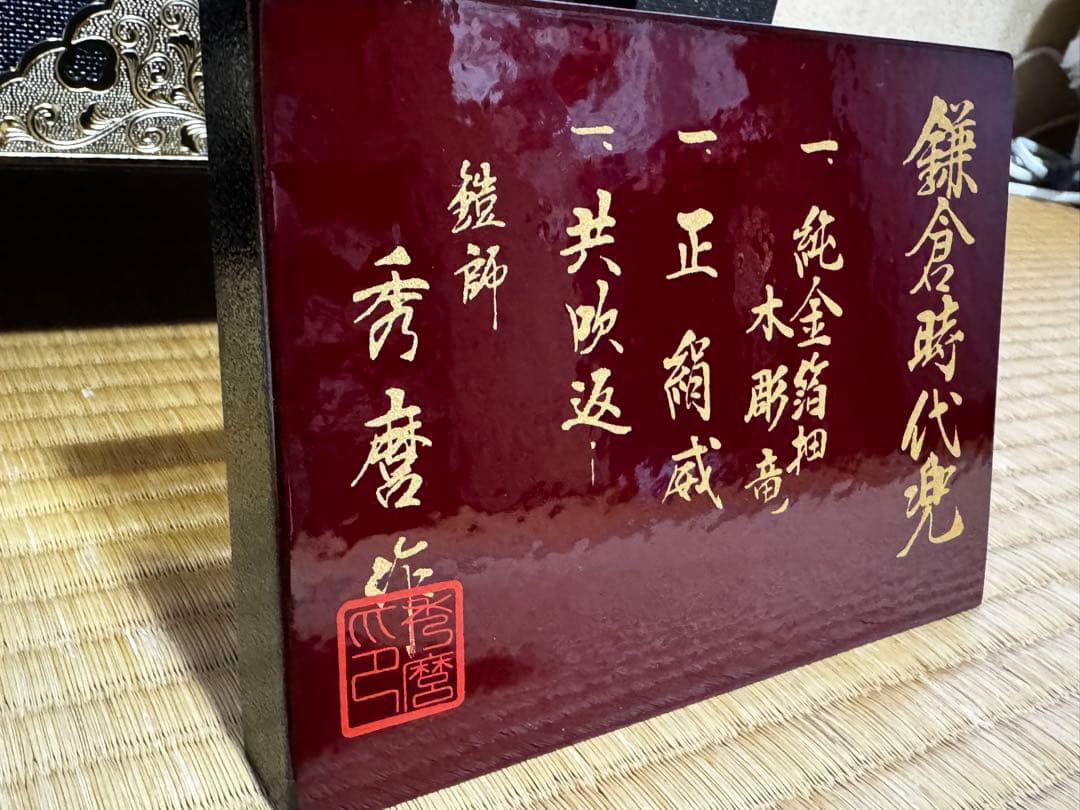 鎌倉時代兜
一、純金箔押
木彫竜
一、正絹威
一、共吹返し
鎧師
秀麿作
秀麿
之印